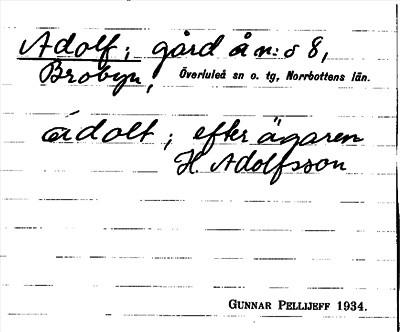 Adolf; gård å n:o 8,
Brobyn, Överluleå sn o. tg, Norrbottens län.
ádolf; efter ägaren
H. Adolfsson
GUNNAR PELLIJEFF 1934.